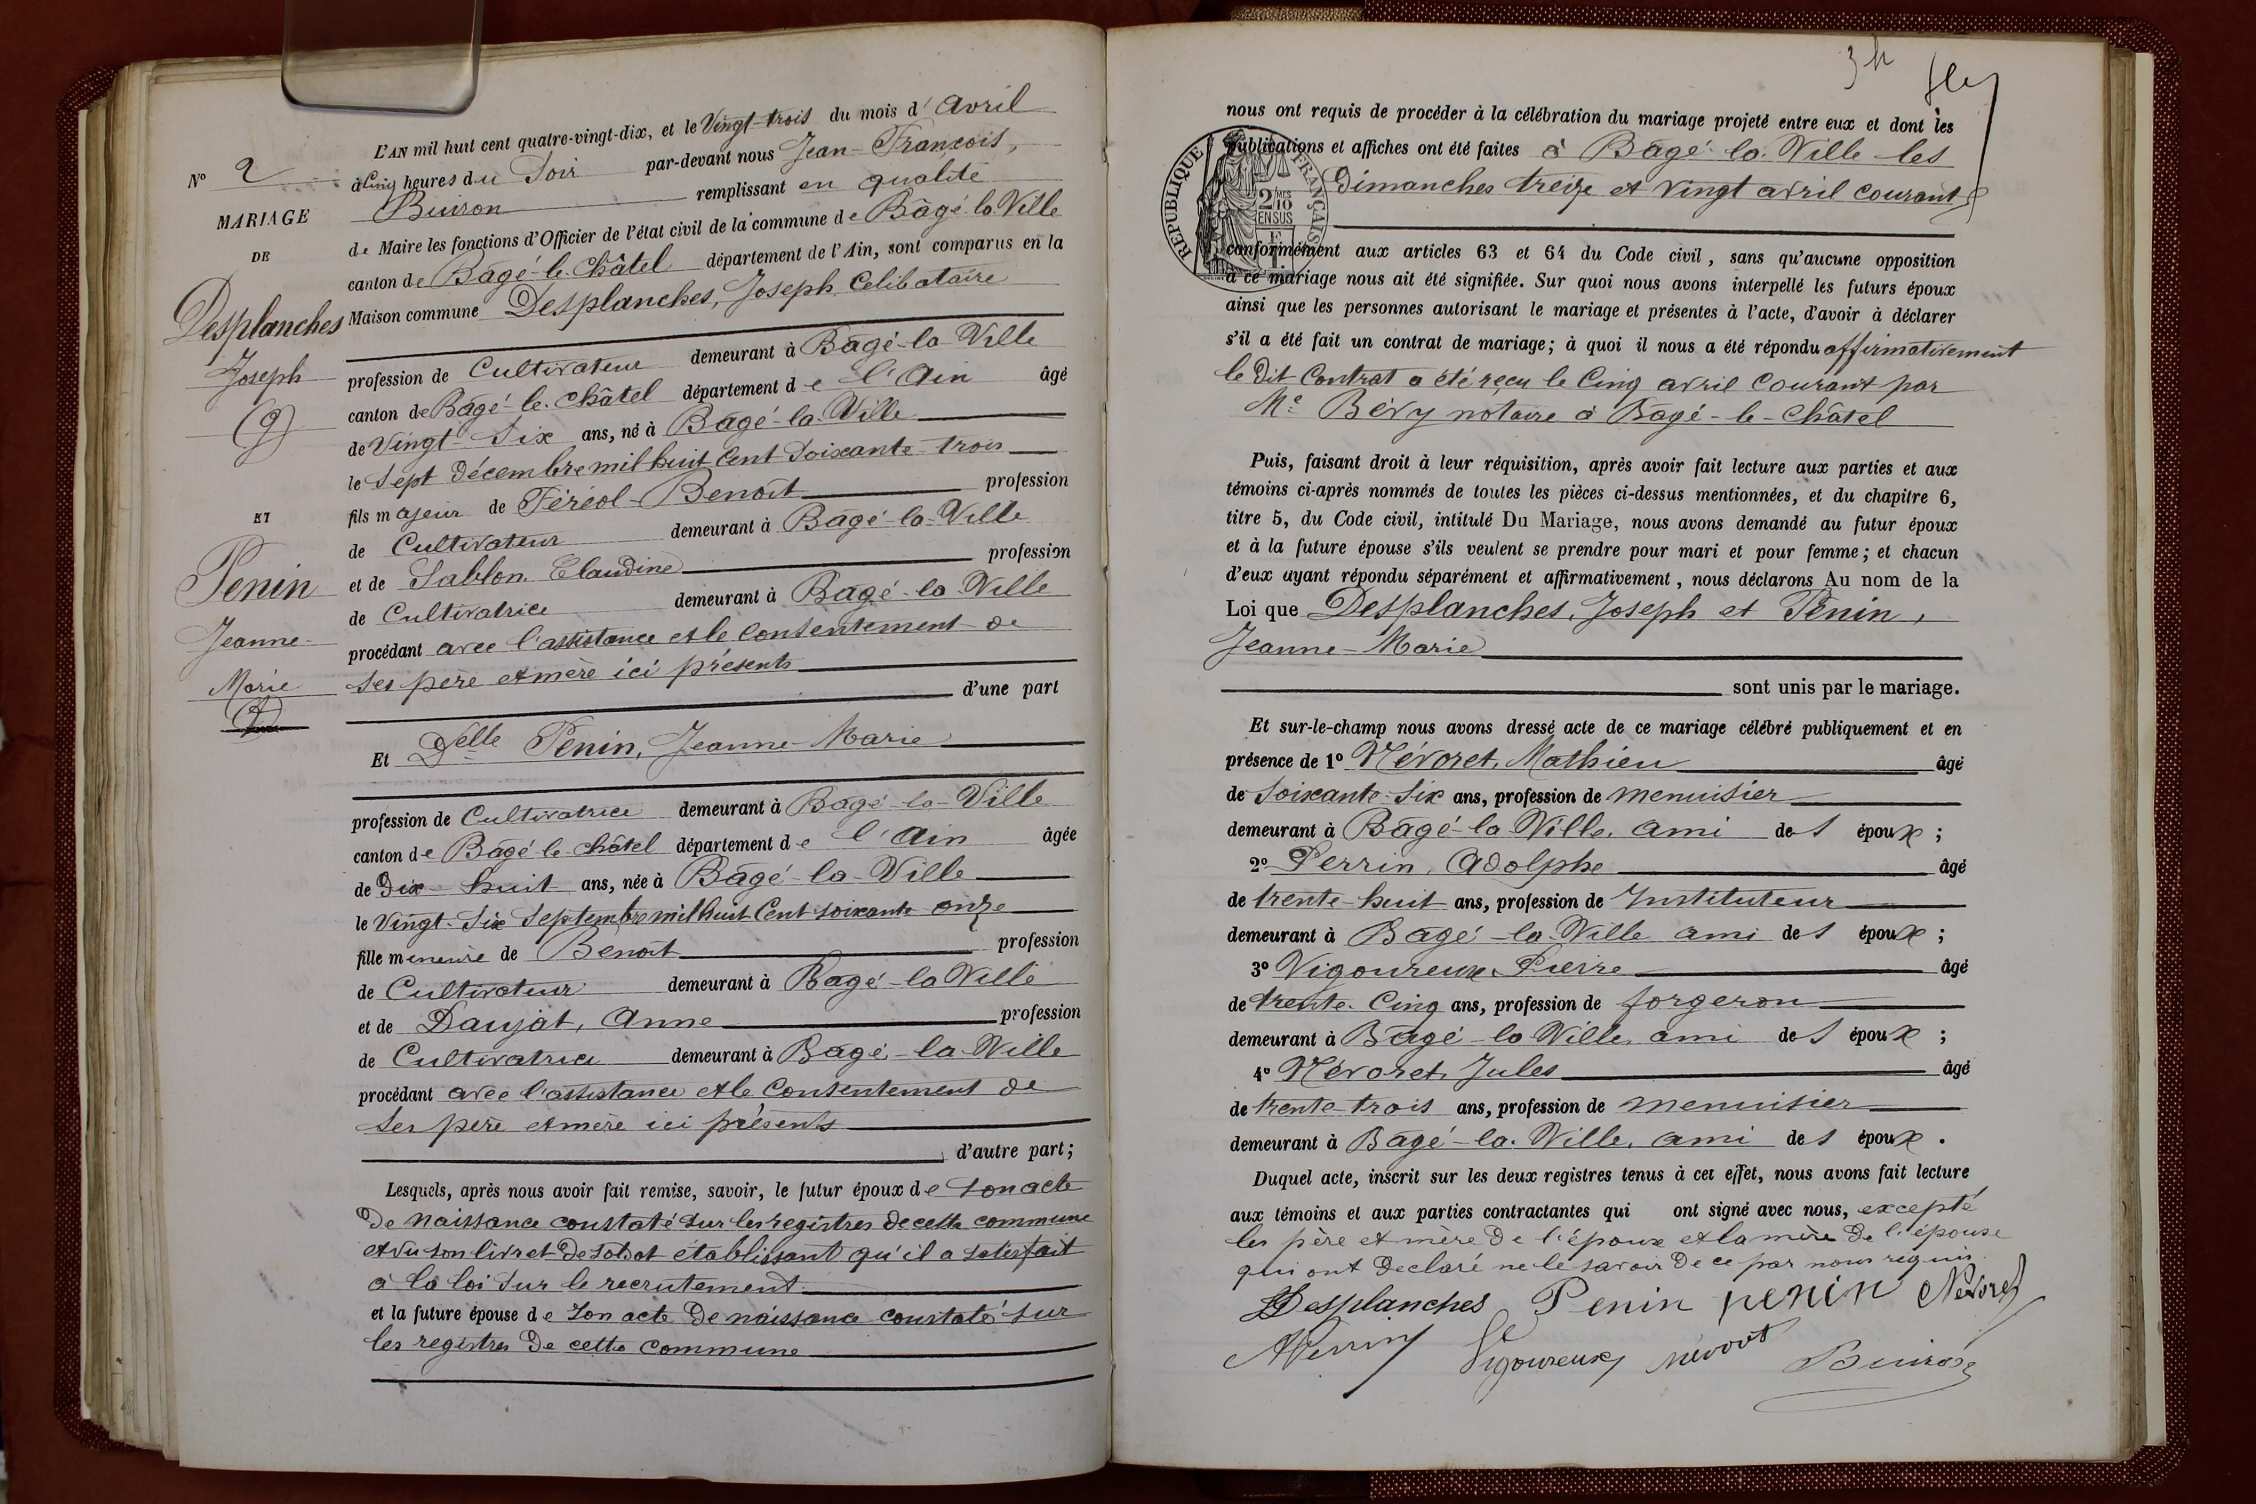 L'AN mil huit cent quatre-vingt-dix, et le Vingt-trois du mois d'Avril
à Cinq heures du Soir par-devant nous Jean-François,
Buiron remplissant en qualité
de Maire les fonctions d'Officier de l'état civil de la commune de Bâgé-la-Ville
canton de Bâgé-le-Châtel département de l'Ain, sont comparus en la
Maison commune Desplanches, Joseph, Celibataire
profession de Cultivateur demeurant à Bâgé-la-Ville
canton de Bâgé-le-Châtel département de l'Ain âgé
de Vingt-Six ans, né à Bâgé-la-Ville
le Sept Décembre mil huit Cent Soixante-trois
fils majeur de Féréol-Benoît profession
de Cultivateur demeurant à Bâgé-la-Ville
et de Sablon, Claudine profession
de Cultivatrice demeurant à Bâgé-la-Ville
procédant avec l'assistance et le Consentement de
ses père et mère ici présents
d'une part
Et Delle Penin, Jeanne-Marie
profession de Cultivatrice demeurant à Bâgé-la-Ville
canton de Bâgé-le-Châtel département de l'Ain âgée
de Dix-huit ans, née à Bâgé-la-Ville
le Vingt-Six Septembre mil huit Cent soixante-onze
fille mineure de Benoît profession
de Cultivateur demeurant à Bâgé-la-Ville
et de Daujat, Anne profession
de Cultivatrice demeurant à Bâgé-la-Ville
procédant avec l'assistance et le Consentement de
ses père et mère ici présents
d'autre part;
Lesquels, après nous avoir fait remise, savoir, le futur époux de son acte
de naissance constaté sur les registres de cette commune
et vu son livret de soldat établissant qu'il a satisfait
à la loi sur le recrutement
et la future épouse de son acte de naissance constaté sur
les registres de cette commune
No 2
MARIAGE
DE
Desplanches
Joseph
(g)
ET
Penin
Jeanne-
Marie
3h
nous ont requis de procéder à la célébration du mariage projeté entre eux et dont les
publications et affiches ont été faites à Bâgé-la-Ville les
Dimanches treize et vingt avril courant
RÉPUBLIQUE FRANÇAISE
2/10
EN SUS
conformément aux articles 63 et 64 du Code civil, sans qu'aucune opposition
à ce mariage nous ait été signifiée. Sur quoi nous avons interpellé les futurs époux
ainsi que les personnes autorisant le mariage et présentes à l'acte, d'avoir à déclarer
s'il a été fait un contrat de mariage; à quoi il nous a été répondu affirmativement
le dit Contrat a été reçu le Cinq avril courant par
Me Béry notaire à Bâgé-le-Châtel
Puis, faisant droit à leur réquisition, après avoir fait lecture aux parties et aux
témoins ci-après nommés de toutes les pièces ci-dessus mentionnées, et du chapitre 6,
titre 5, du Code civil, intitulé Du Mariage, nous avons demandé au futur époux
et à la future épouse s'ils veulent se prendre pour mari et pour femme; et chacun
d'eux ayant répondu séparément et affirmativement, nous déclarons Au nom de la
Loi que Desplanches, Joseph et Penin,
Jeanne-Marie
sont unis par le mariage.
Et sur-le-champ nous avons dressé acte de ce mariage célébré publiquement et en
présence de 1o Névoret, Mathieu âgé
de Soixante-Six ans, profession de menuisier
demeurant à Bâgé-la-Ville, ami des époux;
2o Perrin, Adolphe âgé
de trente-huit ans, profession de Instituteur
demeurant à Bâgé-la-Ville ami des époux;
3o Vigoureux, Pierre âgé
de trente-Cinq ans, profession de forgeron
demeurant à Bâgé-la-Ville, ami des époux;
4o Névoret, Jules âgé
de trente-trois ans, profession de menuisier
demeurant à Bâgé-la-Ville, ami des époux.
Duquel acte, inscrit sur les deux registres tenus à cet effet, nous avons fait lecture
aux témoins et aux parties contractantes qui ont signé avec nous, excepté
les père et mère de l'époux et la mère de l'épouse
qui ont déclaré ne le savoir de ce par nous requis
Desplanches Penin penin Nevoret
APerrin Vigoureux nevoret Buiron